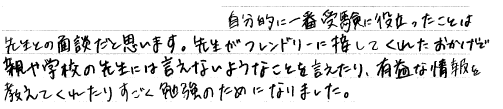 自分的に一番受験に役立ったことは
先生との面談だと思います。先生がフレンドリーに接してくれたおかげで
親や学校の先生には言えないようなことを言えたり、有益な情報を
教えてくれたりすごく勉強のためになりました。